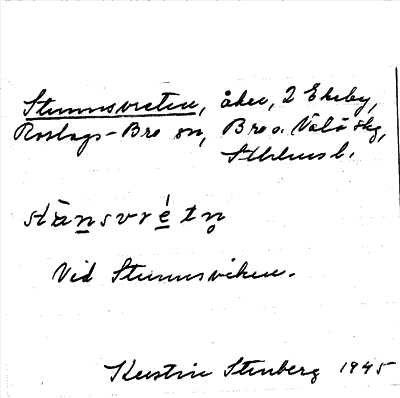 Stunnsvreten, åker, 2 Ekeby,
Roslags-Bro sn, Bro o. Väto skg,
Sthlms l.
stànsvrétn̥
Vid Stunnsviken.
Kerstin Stenberg 1945